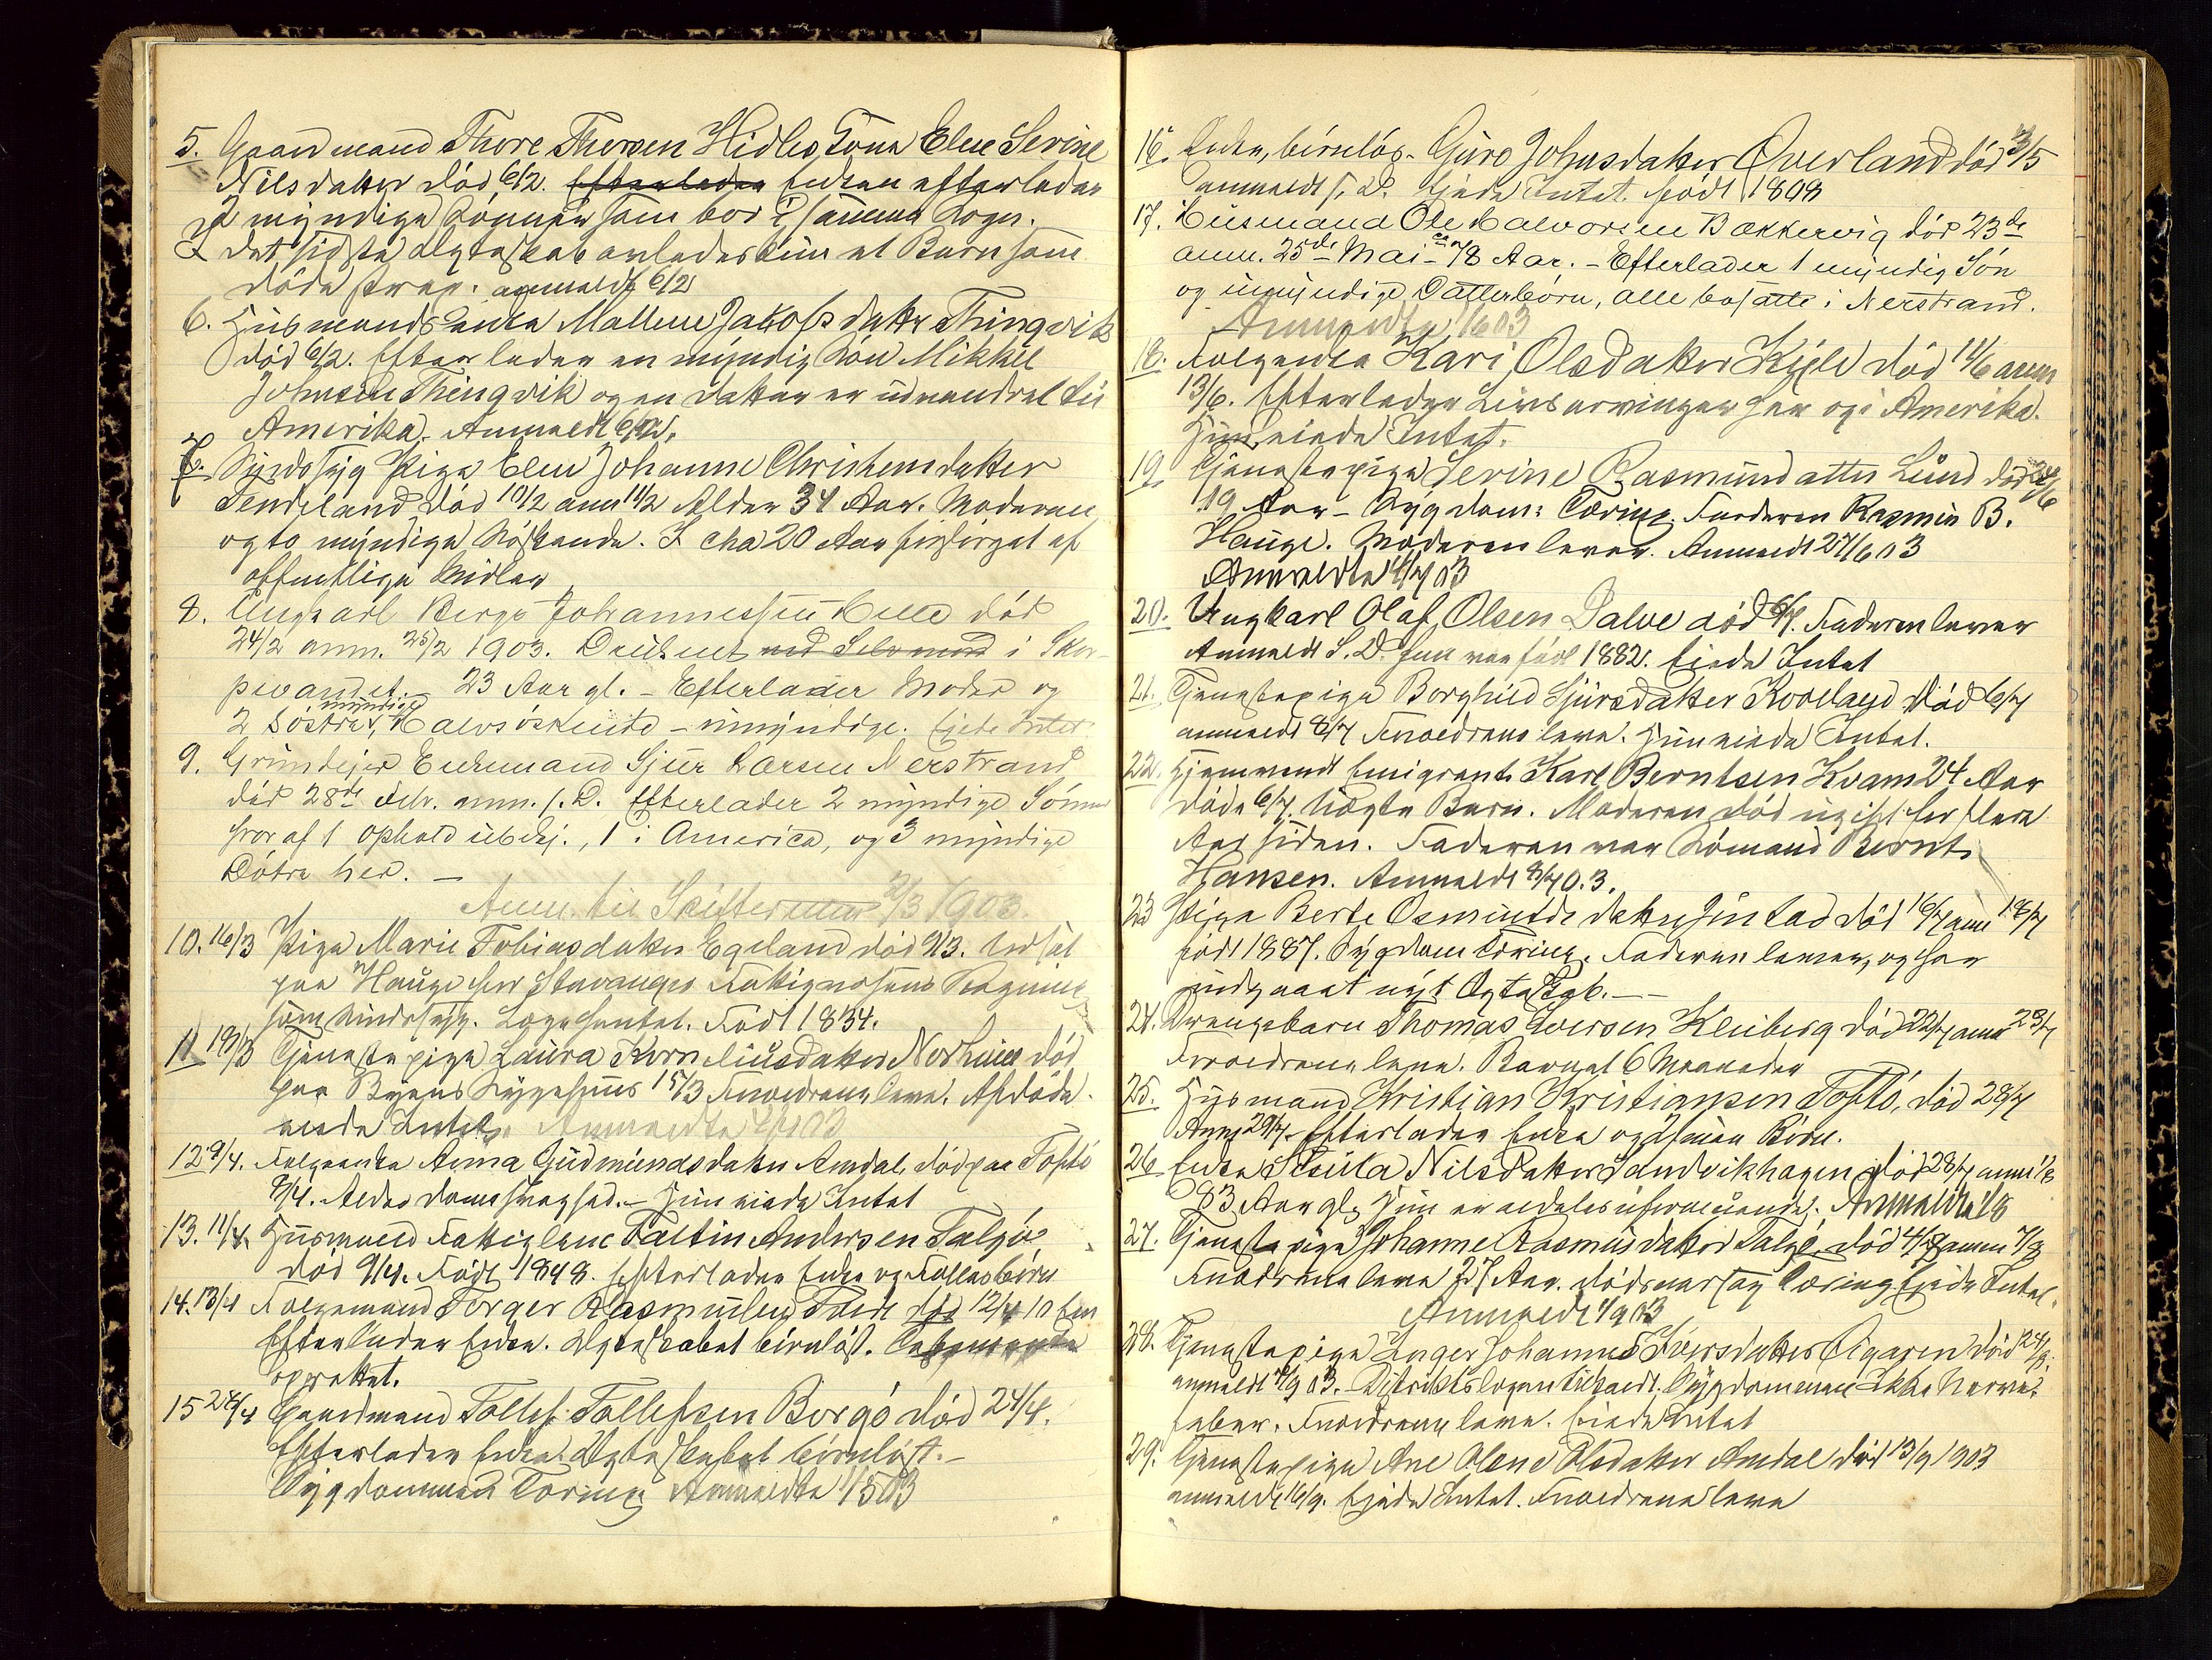 5. Gaardmand Thore Thorsen Hidles Kona Elen Serine
Nilsdatter død 6/2. Efterlader Enken efterlader
2 myndige Sønner som bor i samme Sogn.
I det sidste Ægteskab avledes kun et Barn som
døde strax. anmeldt 6/2
6. Husmandsenke Mallene Jakobsdatter Thingvik
død 6/2. Efterlader en myndig Søn Mikkel
Johnsen Thingvik og en datter er udvandret til
Amerika. Anmeldt 6/2
7. Sindssyg Pige Elen Johanne Christensdatter
død 10/2 anm 11/2 Alder 34 Aar. Moderen
og to myndige Søskende. I cha 20 Aar forsørget af
offentlige Midler
8. Ungkarl Berge Johannessen død
24/2 anm. 25/2 1903. Druknet ved Selvmord i
23 Aar gl. - Efterlader Moder og
2 Søstre, myndige Halvsøskende - umyndige. Ejede Intet
9. Grundejer Enkemand Sjur Larsen Nerstrand
død 28de Febr. anm. s. D. Efterlader 2 myndige Sønner
hvoraf 1 Ophold ubekj., 1 i America, og 3 myndige
Døtre her. -
Anm. til Skifteretten 2/3 1903.
10. 16/3 Pige Marie Tobiasdatter Egeland død 9/3. Indsat
paa Hauge for Stavanger Fattigvæsens Regning
som sindssyg. Født 1834.
11 18/3 Tjenestepige Laura Korneliusdatter død
paa Byens Sygehuus 15/3 Forældrene leve. Afdøde
eiede Intet. Anmeldte
12 9/4. Folgeenke Anna Gudmundsdatter Amdal død paa Toftø
8/4. Alderdomssvaghed. - Hun eiede Intet
13. 11/4 Husmand Fattiglem Faltin Andersen Talgø
død 9/4. Født 1848. Efterlader Enke og Fællesbørn
14. 13/4 Folgemand Torger Rasmusen død 12/4 10 Em
Efterlader Enke. Ægteskabet børnløst. Testamente
oprettet.
15 24/4 Gaardmand Tollef Tollefsen Borgø død 24/4.
Efterlader Enke. Ægteskabet børnløst. -
Sygdommen Tæring Anmeldte 1/5 03
16. Enke, børnløs. Guro Johnsdatter Overland død 3/5
anmeldt s. D. Ejede Intet. født 1808
17. Husmand Ole Halvorsen Bækkervig død 23de
anm. 25de Mai - 78 Aar. - Efterlader 1 myndig Søn
og umyndige Datterbørn, alle bosatte i Nerstrand.
Anmeldte 1/6 03
18. Folgeenke Kari Olsdatter død 11/6 anm
13/6. Efterlader Livsarvinger her og i Amerika.
Hun eiede Intet.
19. Tjenestepige Serine Rasmusdatter Lund død 24/6
19 Aar - Sygdom: Tæring. Faderen Rasmus B.
Hauge. Moderen lever. Anmeldt 27/6 03
Anmeldte 1/7 03
20. Ungkarl Olaf Olsen Dalve død 4/7. Faderen lever
Anmeldt S. D. Han var født 1882. Eiede Intet
21. Tjenestepige Borghild Sjursdatter død 6/7
anmeldt 8/7 Forældrene leve. Hun eiede Intet.
22. Hjemvendt Emigrant Karl Berntsen Kvam 24 Aar
døde 6/7. Uægte Barn. Moderen død ugift for flere
Aar siden. Faderen var Sømand Bernt
Hansen. Anmeldt 8/7 0.3.
23 Pige Berte Osmundsdatter død 16/7 anm 18/7
født 1887. Sygdom Tæring. Faderen lever, og har
indgaaet nyt Ægteskab. - -
24. Drengebarn Thomas Iversen Kleiberg død 22/7 anm 23/7
Forældrene leve. Barnet 6 Maaneder
25. Husmand Kristian Kristiansen Toftø, død 28/7
Anm 29/7. Efterlader Enke og 2 smaa Børn.
26 Enke Nilsdatter Sandvikhagen død 28/7 anm 1/8
83 Aar gl. Hun er aldeles uformuende. Anmeldte 1/8
27. Tjenestepige Johanne Rasmusdatter Talgø, død 4/8 anm 7/8
Forældrene leve 27 Aar. Dødsaarsag Tæring Eiede Intet.
Anmeldt 1/9 03
28. Tjenestepige Inger Johanne Iversdatter død 24/8
anmeldt 1/9 03. - Distriktslægen tilkaldt. Sygdommen
feber. Forældrene leve. Eiede Intet
29. Tjenestepige Ane Olene Olsdatter Amdal død 13/9 1903
anmeldt 16/9. Ejede Intet. Forældrene leve